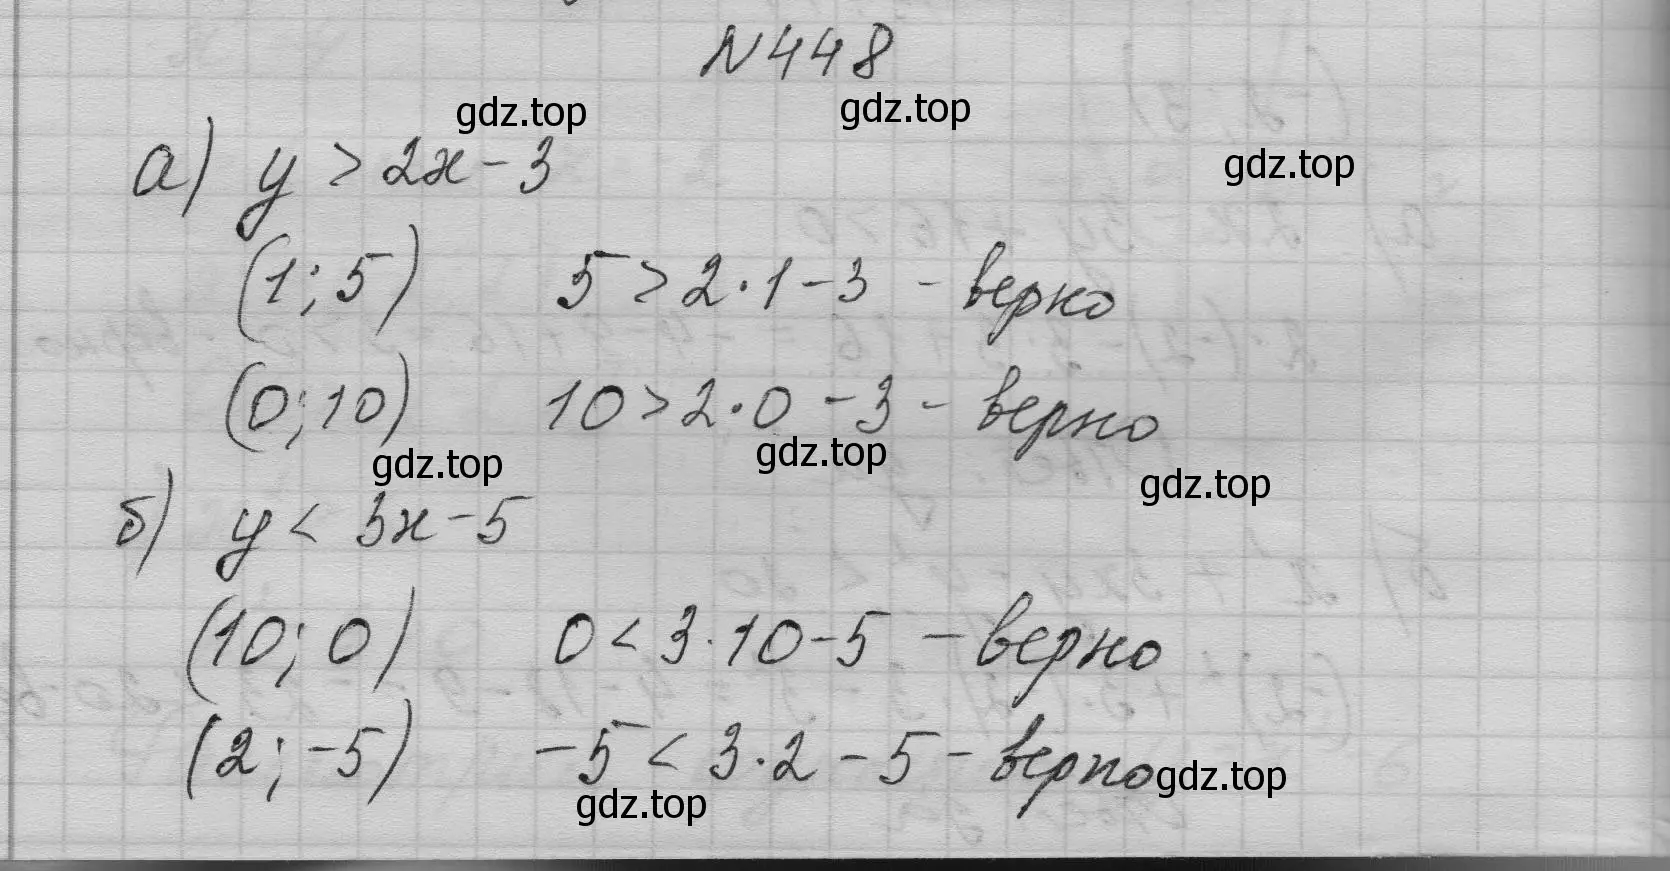 N448
gdz.top gdz.top
gdz.top
а) y > 2x - 3
(1; 5) 5 > 2·1 - 3 - верно
(0; 10) 10 > 2·0 - 3 - верно
gdz.top gdz.top gdz.top
б) y < 3x - 5
(10; 0) 0 < 3·10 - 5 - верно
(2; -5) -5 < 3·2 - 5 - верно
gdz.top gdz.top